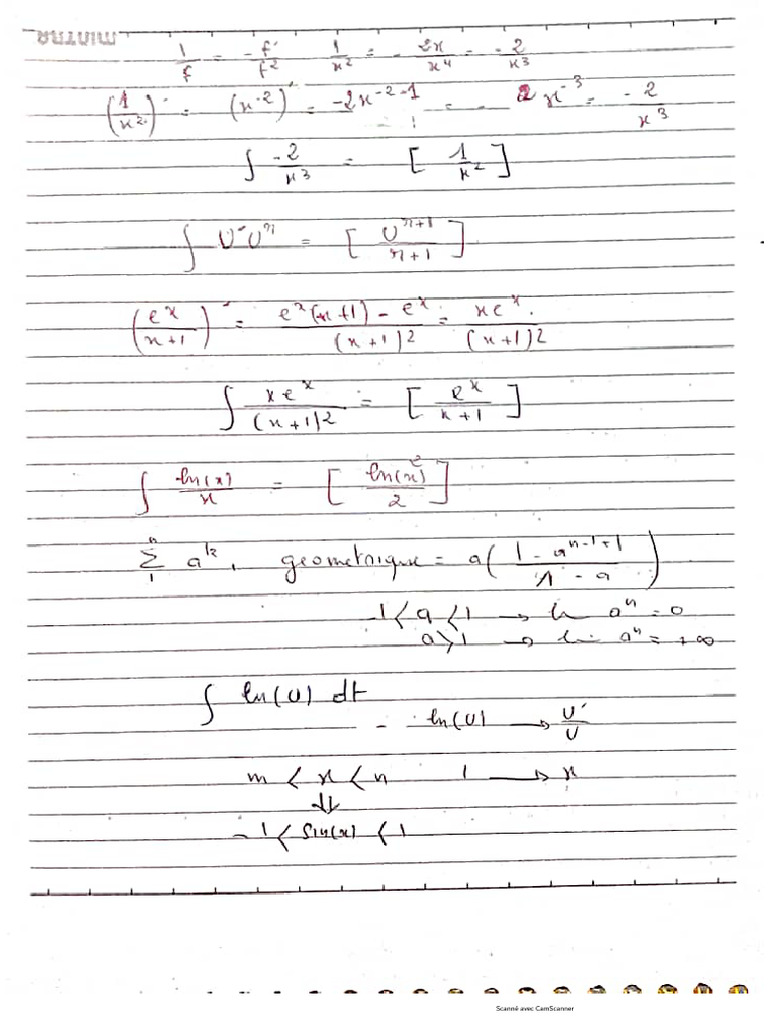 MINTRA
1/f = -f'/f² 1/x² = -2x/x⁴ = -2/x³
(1/x²)' = (x⁻²)' = -2x⁻²⁻¹ = -2x⁻³ = -2/x³
∫ -2/x³ = [1/x²]
∫ U'Uⁿ = [Uⁿ⁺¹/n+1]
(eˣ/x+1)' = eˣ(x+1) - eˣ/(x+1)² = xeˣ/(x+1)²
∫ xeˣ/(x+1)² = [eˣ/x+1]
∫ ln(x)/x = [ln(x)²/2]
Σ₁ⁿ aᵏ, geometrique = a(1-aⁿ⁻¹⁺¹/1-a)
-1<a<1 → lim aⁿ = 0
a>1 → lim aⁿ = +∞
∫ ln(U) dt
- ln(U) → U'/U
m < x < n 1 → x
⇓
-1 < Sin(x) < 1
Scanné avec CamScanner